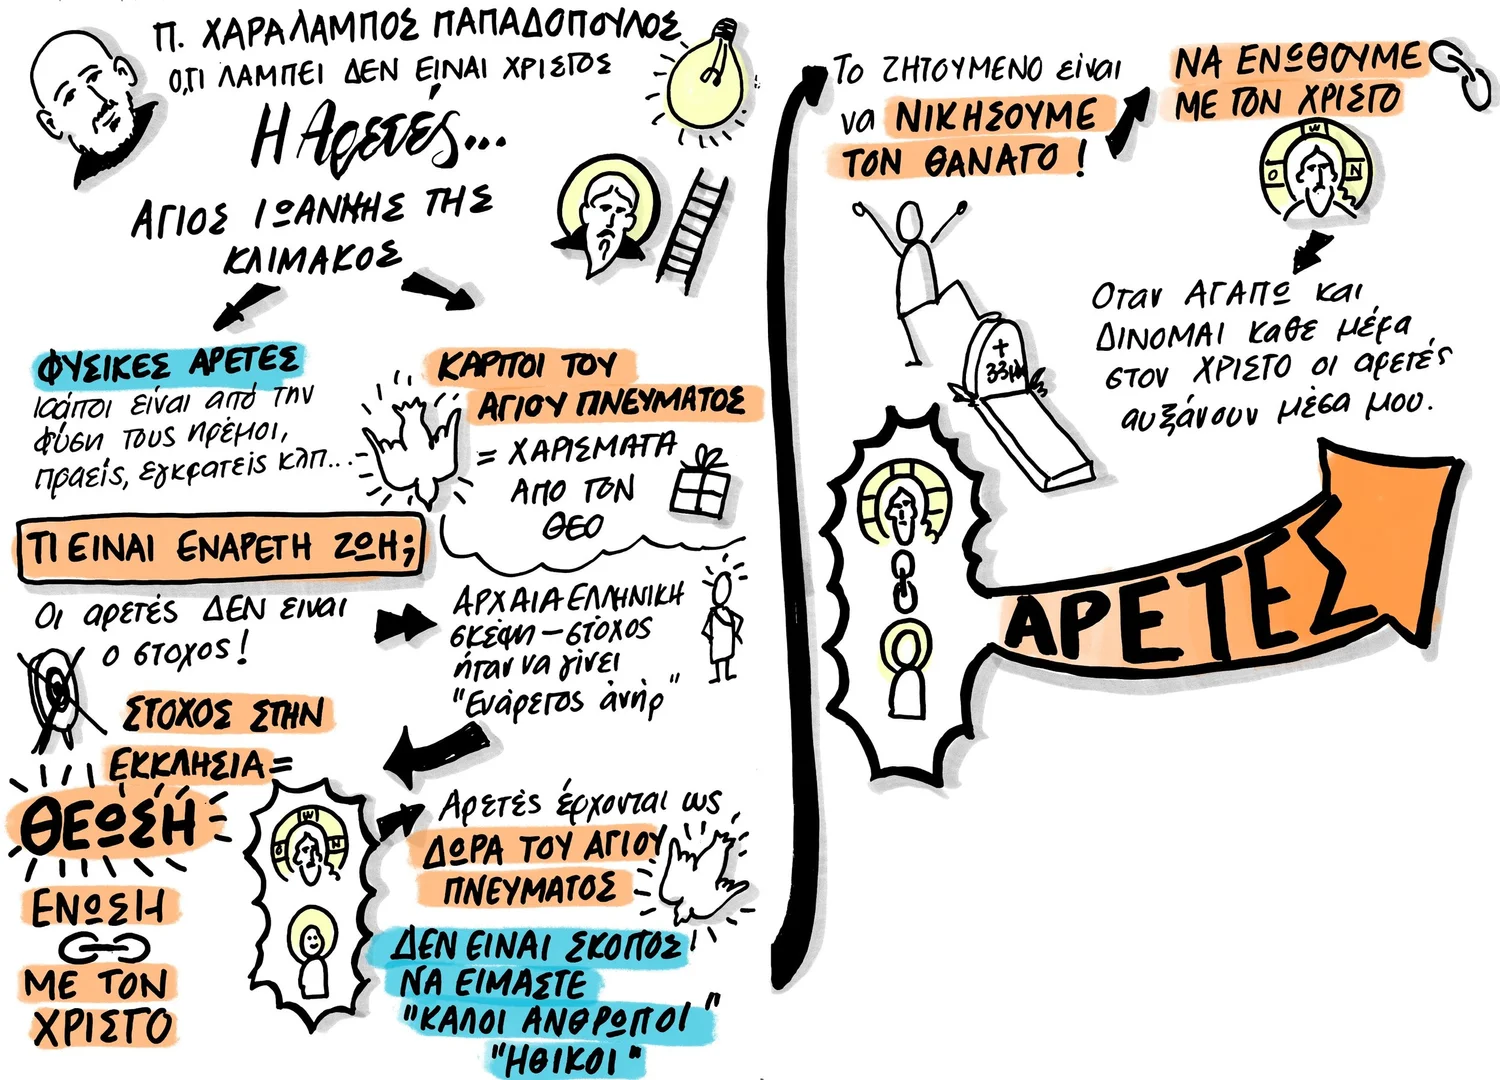 Π. ΧΑΡΑΛΑΜΠΟΣ ΠΑΠΑΔΟΠΟΥΛΟΣ
Ο,ΤΙ ΛΑΜΠΕΙ ΔΕΝ ΕΙΝΑΙ ΧΡΙΣΤΟΣ
Η Αρετές...
ΑΓΙΟΣ ΙΩΑΝΝΗΣ ΤΗΣ
ΚΛΙΜΑΚΟΣ
ΦΥΣΙΚΕΣ ΑΡΕΤΕΣ
κάποι είναι από την
φύση τους ήρεμοι,
πραείς, εγκρατείς κλπ...
ΚΑΡΠΟΙ ΤΟΥ
ΑΓΙΟΥ ΠΝΕΥΜΑΤΟΣ
= ΧΑΡΙΣΜΑΤΑ
ΑΠΟ ΤΟΝ
ΘΕΟ
ΤΙ ΕΙΝΑΙ ΕΝΑΡΕΤΗ ΖΩΗ;
Οι αρετές ΔΕΝ ειναι
ο στοχος!
ΑΡΧΑΙΑ ΕΛΛΗΝΙΚΗ
σκέψη - στόχος
ήταν να γίνει
"Ενάρετος ἀνήρ"
ΣΤΟΧΟΣ ΣΤΗΝ
ΕΚΚΛΗΣΙΑ =
ΘΕΩΣΗ
ΕΝΩΣΗ
ΜΕ ΤΟΝ
ΧΡΙΣΤΟ
Ο Ω Ν
Αρετές έρχονται ως
ΔΩΡΑ ΤΟΥ ΑΓΙΟΥ
ΠΝΕΥΜΑΤΟΣ
ΔΕΝ ΕΙΝΑΙ ΣΚΟΠΟΣ
ΝΑ ΕΙΜΑΣΤΕ
"ΚΑΛΟΙ ΑΝΘΡΩΠΟΙ"
"ΗΘΙΚΟΙ"
Το ΖΗΤΟΥΜΕΝΟ είναι
να ΝΙΚΗΣΟΥΜΕ
ΤΟΝ ΘΑΝΑΤΟ!
ΝΑ ΕΝΩΘΟΥΜΕ
ΜΕ ΤΟΝ ΧΡΙΣΤΟ
Ο Ω Ν
Οταν ΑΓΑΠΩ και
ΔΙΝΟΜΑΙ καθε μέρα
στον ΧΡΙΣΤΟ οι αρετές
αυξάνουν μέσα μου.
ΑΡΕΤΕΣ